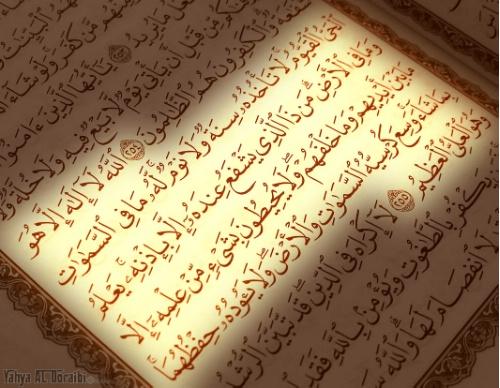 مَّن كَفَرَ وَلَوْ شَاءَ
مَا يُرِيدُ ٢٥٣ يَٰٓأَيُّهَا ٱلَّذِينَ ءَامَنُوٓا۟
مِّن قَبْلِ أَن يَأْتِىَ يَوْمٌ لَّا بَيْعٌ فِيهِ وَلَا خُلَّةٌ وَلَا
شَفَٰعَةٌ وَٱلْكَٰفِرُونَ هُمُ ٱلظَّٰلِمُونَ ٢٥٤ ٱللَّهُ لَآ إِلَٰهَ إِلَّا هُوَ
ٱلْحَىُّ ٱلْقَيُّومُ لَا تَأْخُذُهُۥ سِنَةٌ وَلَا نَوْمٌ لَّهُۥ مَا فِى ٱلسَّمَٰوَٰتِ
وَمَا فِى ٱلْأَرْضِ مَن ذَا ٱلَّذِى يَشْفَعُ عِندَهُۥٓ إِلَّا بِإِذْنِهِۦ يَعْلَمُ
مَا بَيْنَ أَيْدِيهِمْ وَمَا خَلْفَهُمْ وَلَا يُحِيطُونَ بِشَىْءٍ مِّنْ عِلْمِهِۦٓ إِلَّا
بِمَا شَآءَ وَسِعَ كُرْسِيُّهُ ٱلسَّمَٰوَٰتِ وَٱلْأَرْضَ وَلَا يَـُٔودُهُۥ حِفْظُهُمَا
وَهُوَ ٱلْعَلِىُّ ٱلْعَظِيمُ ٢٥٥ لَآ إِكْرَاهَ فِى ٱلدِّينِ قَد تَّبَيَّنَ ٱلرُّشْدُ
يَكْفُرْ بِٱلطَّٰغُوتِ وَيُؤْمِنۢ بِٱللَّهِ فَقَدِ
لَا ٱنفِصَامَ لَهَا وَٱللَّهُ
Yahya AL Doraibi